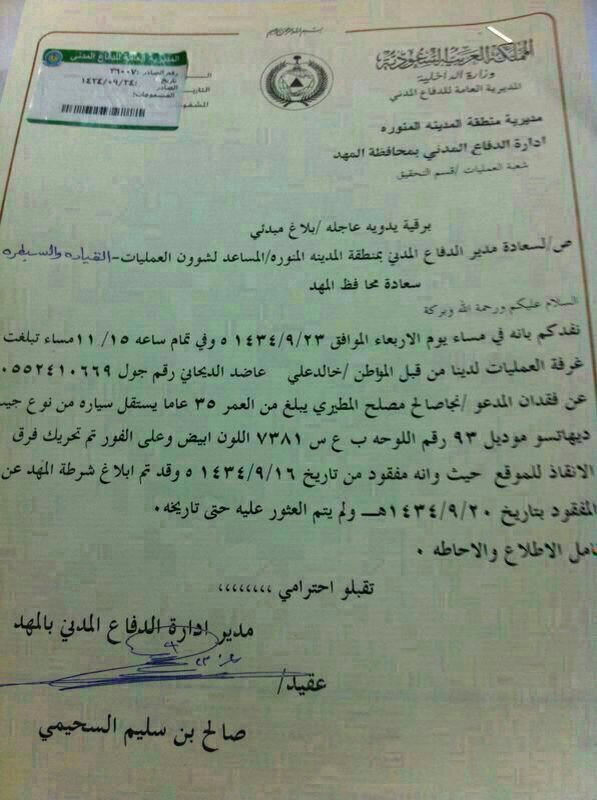 بسم الله الرحمن الرحيم
المملكة العربية السعودية
وزارة الداخلية
المديرية العامة للدفاع المدني
مديرية منطقة المدينه المنوره
ادارة الدفاع المدني بمحافظة المهد
شعبة العمليات /قسم التحقيق
المديرية العامة للدفاع المدني
رقم الصادر :٣٦٠٠٧
تاريخ الصادر :١٤٣٤/٠٩/٢٤
المشفوعات:
برقية يدويه عاجله /بلاغ مبدئي
ص/لسعادة مدير الدفاع المدني بمنطقة المدينه المنوره/المساعد لشوون العمليات-القياده والسيطره
سعادة محافظ المهد
السلام عليكم ورحمة الله وبركة
نفدكم بانه في مساء يوم الاربعاء الموافق ١٤٣٤/٩/٢٣ ه وفي تمام ساعه ١١/١٥ مساء تبلغت
غرفة العمليات لدينا من قبل المواطن /خالدعلي عاضد الديحاني رقم جول ٠٥٥٢٤١٠٦٦٩
عن فقدان المدعو /نجاصالح مصلح المطيري يبلغ من العمر ٣٥ عاما يستقل سياره من نوع جيب
ديهاتسو موديل ٩٣ رقم اللوحه ب ع س ٧٣٨١ اللون ابيض وعلى الفور تم تحريك فرق
الانقاذ للموقع حيث وانه مفقود من تاريخ ١٤٣٤/٩/١٦ ه وقد تم ابلاغ شرطة المهد عن
المفقود بتاريخ ١٤٣٤/٩/٢٠هـ ولم يتم العثور عليه حتى تاريخه.
نامل الاطلاع والاحاطه .
تقبلو احترامي ,,,,,,,,
مدير ادارة الدفاع المدني بالمهد
عقيد/
صالح بن سليم السحيمي